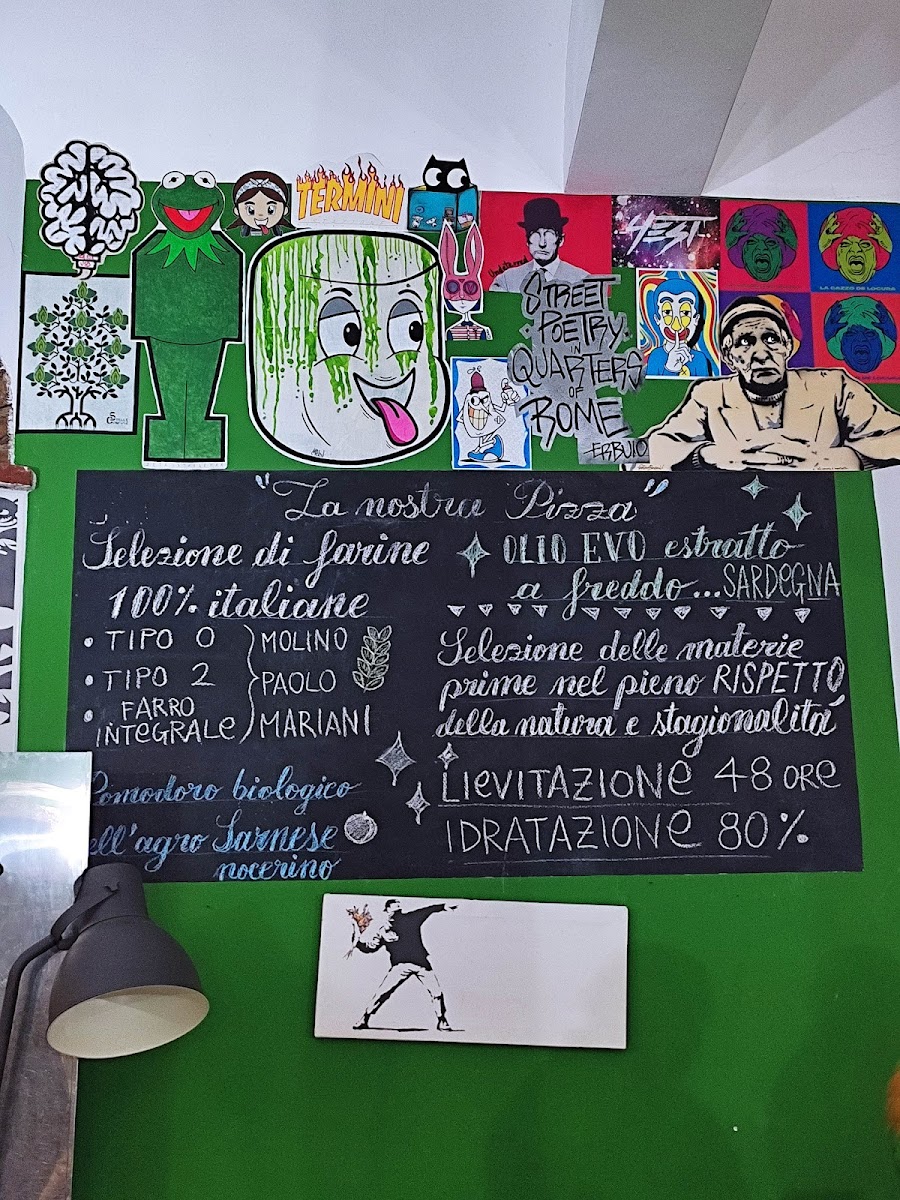 TERMINI
YEST
LA CAZZO DE LOCURA
STREET
POETRY
IN
QUARTERS
OF
ROME
ERBUIO
"La nostra Pizza"
Selezione di farine
100% italiane
• TIPO 0
• TIPO 2
• FARRO
INTEGRALE
MOLINO
PAOLO
MARIANI
Pomodoro biologico
ell'agro Sarnese
nocerino
OLIO EVO estratto
a freddo...SARDEGNA
Selezione delle materie
prime nel pieno RISPETTO
della natura e stagionalità
LIEVITAZIONE 48 ORE
IDRATAZIONE 80%